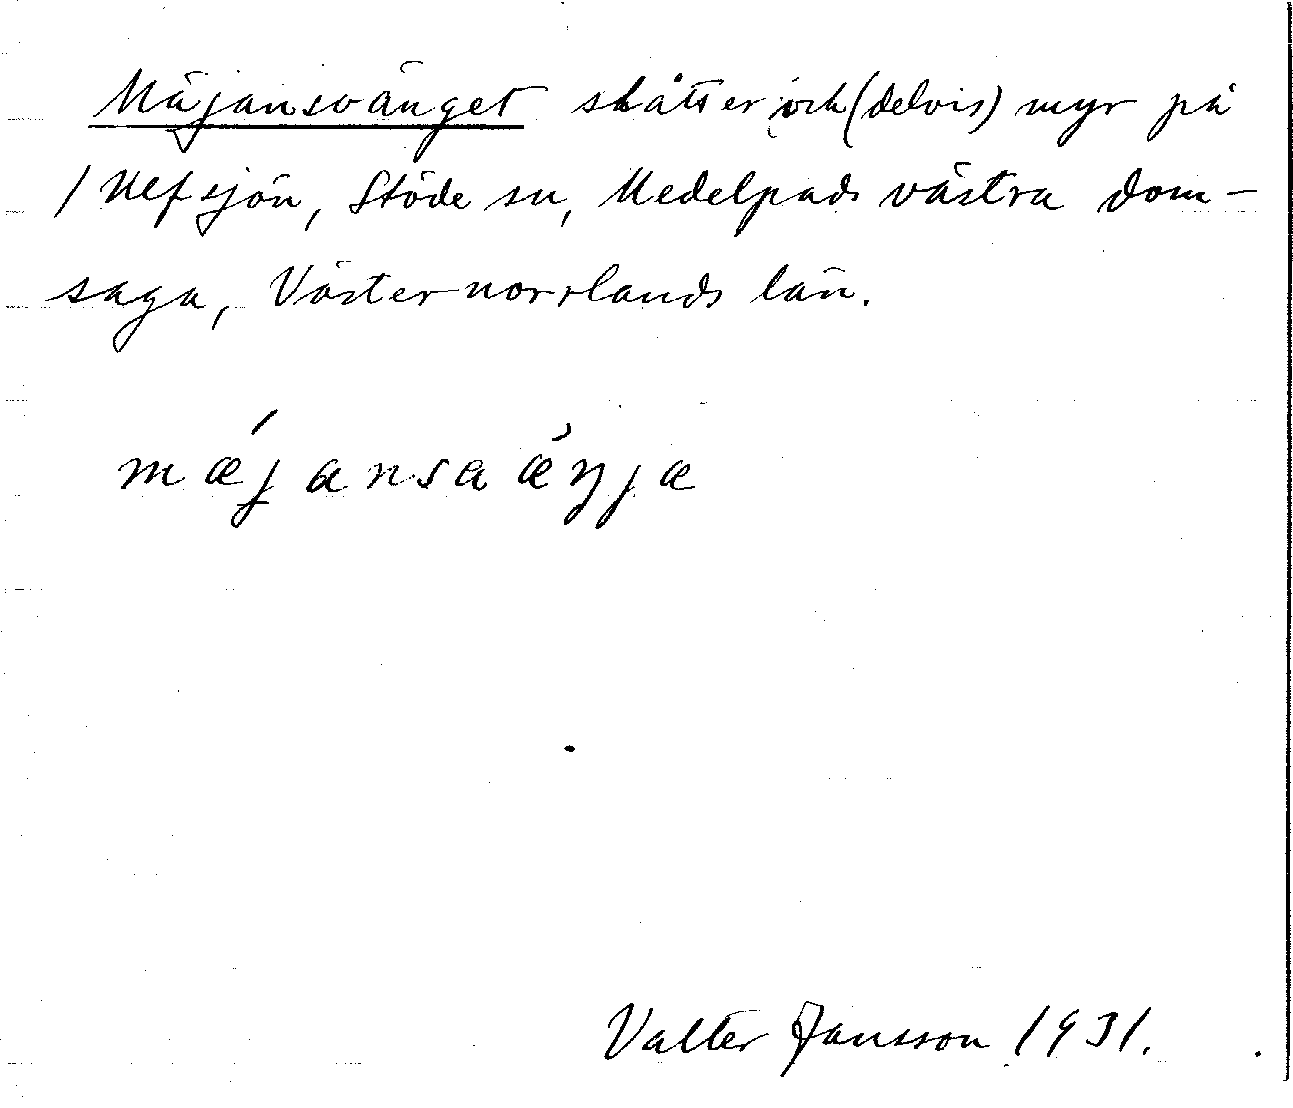 Mäjansvänget slåtter och (delvis) myr på
/ Ulfsjön, Stöde sn, Medelpads västra dom-
saga, Västernorrlands län.
mǽjansaǽŋja
Valter Jansson 1931.